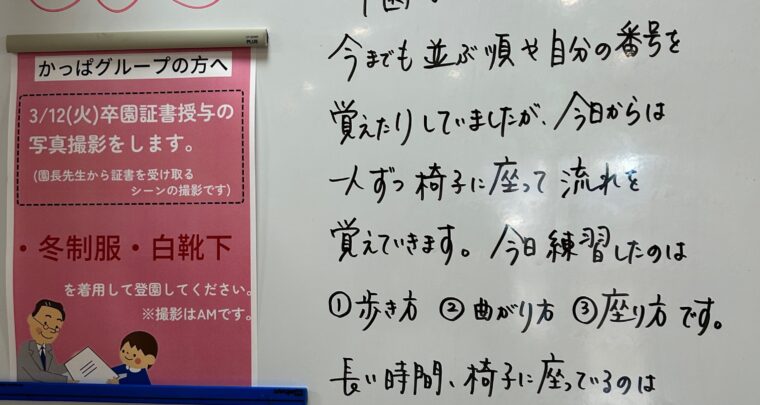 かっぱグループの方へ
3/12(火)卒園証書授与の
写真撮影をします。
(園長先生から証書を受け取る
シーンの撮影です)
・冬制服・白靴下
を着用して登園してください。
※撮影はAMです。
PLUS
今までも並ぶ順や自分の番号を
覚えたりしていましたが、今日からは
一人ずつ椅子に座って流れを
覚えていきます。今日練習したのは
①歩き方 ②曲がり方 ③座り方です。
長い時間、椅子に座っているのは